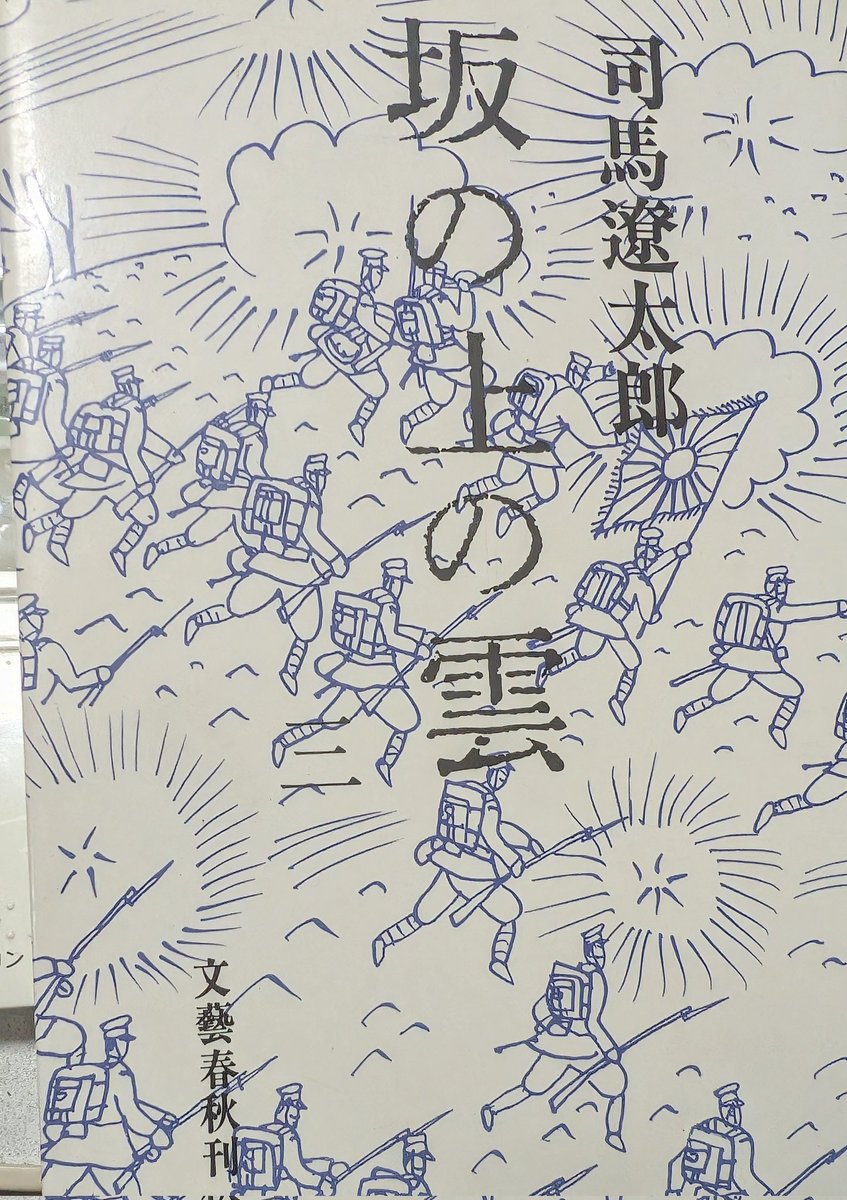 司馬遼太郎
坂の上の雲
三
文藝春秋刊